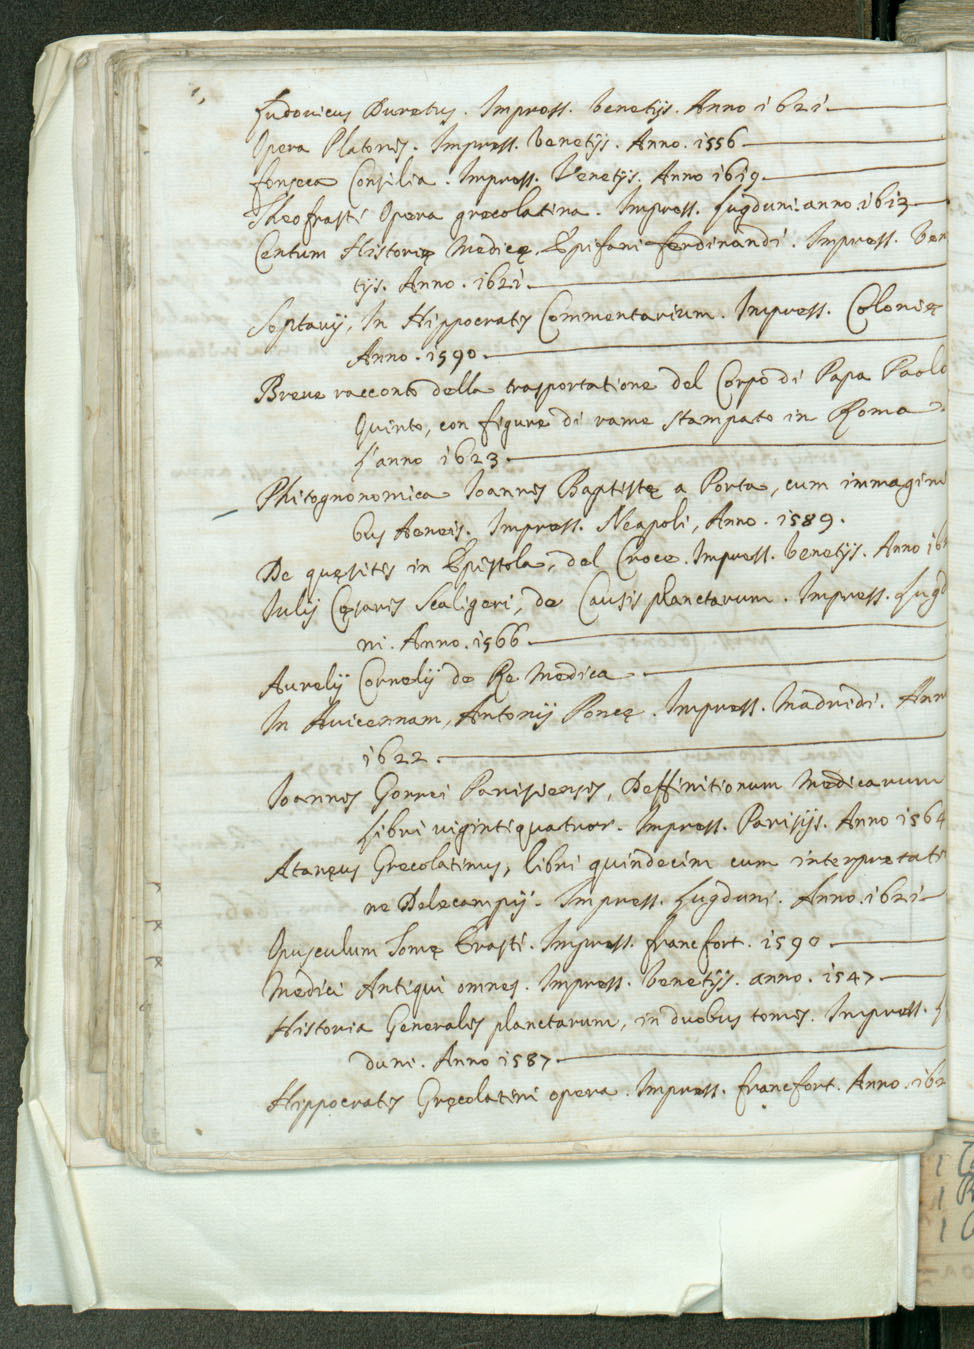 Ludovicus Duretus. Impress. Venetijs. Anno 1621
Opera Platonis. Impress. Venetijs. Anno. 1556
Fonseca Consilia. Impress. Venetijs. Anno 1619
Theofrasti Opera grecolatina. Impress. Lugduni. anno. 1613
Centum Historię Medicę, Epifani ferdinandi. Impress. Ven
tijs. Anno. 1621
Septavij, In Hippocratis Commentarium. Impress. Colonię
Anno. 1590
Breve racconto della trasportatione del Corpo di Papa Paolo
Quinto, con figure di rame stampato in Roma
L'anno 1623
Phitognonomica Ioannis Baptistę a Porta, cum immagini
bus Aeneis. Impress. Neapoli, Anno. 1589.
De quęsitis in Epistola, del Croce. Impress. Venetijs. Anno 16
Iulij Cęsaris Scaligeri, de Causis planctarum. Impress. Lugd
ni. Anno. 1566
Aurelij Cornelij de Re Medica
In Avicennam, Antonij Poncę. Impress. Madridi. Ann
1622.
Ioannes Gorrei Parisiensis, Deffinitionum Medicarum
Libri vigintiquatuor. Impress. Parisijs. Anno 1564
Atanęus Grecolatinus, libri quindecim cum interpretati
ne Delecampij. Impress. Lugduni. Anno. 1621
Opusculum Tomę Erasti. Impress. francfort. 1590
Medici Antiqui omnes. Impress. Venetijs. anno. 1547
Historia Generalis planctarum, in duobus tomis. Impress. L
duni. Anno 1587
Hippocratis Gręcolatini opera. Impress. francfort. Anno. 162